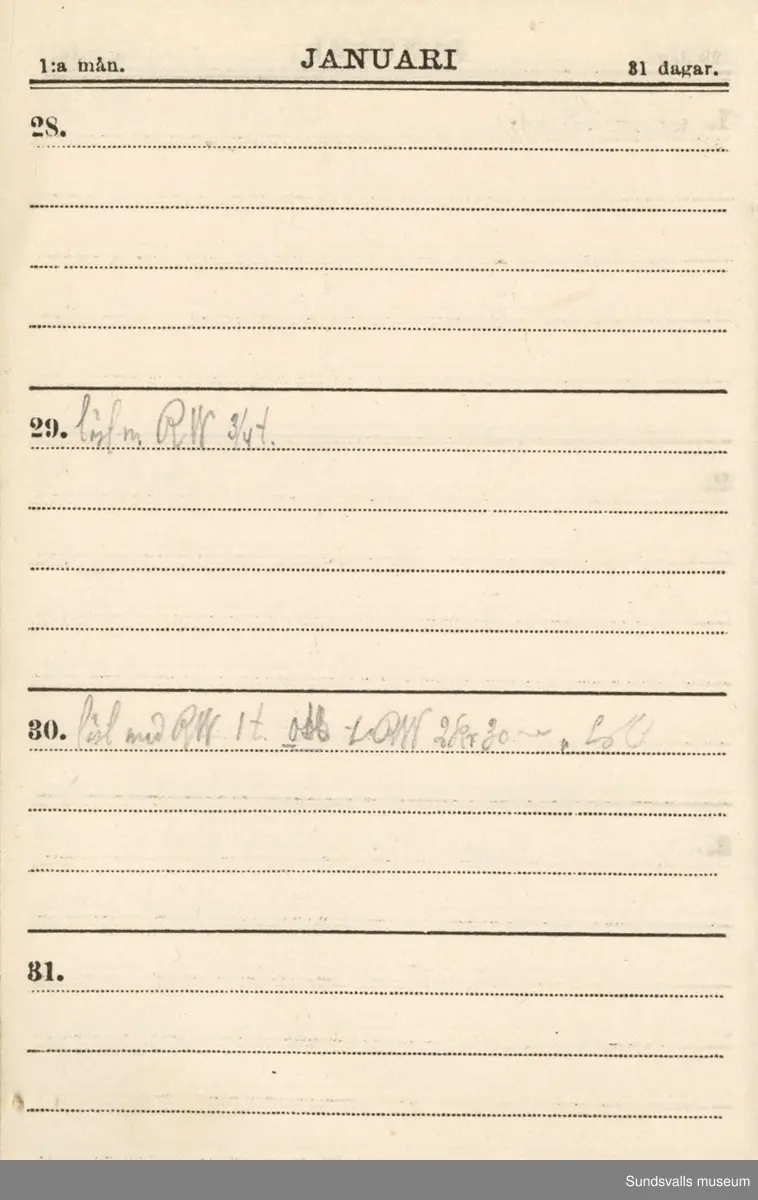 1:a mån. JANUARI 31 dagar.
28.
29. RW 3/4 t.
30. med RW 1 t. RW 2 kr 30
31.
Sundsvalls museum